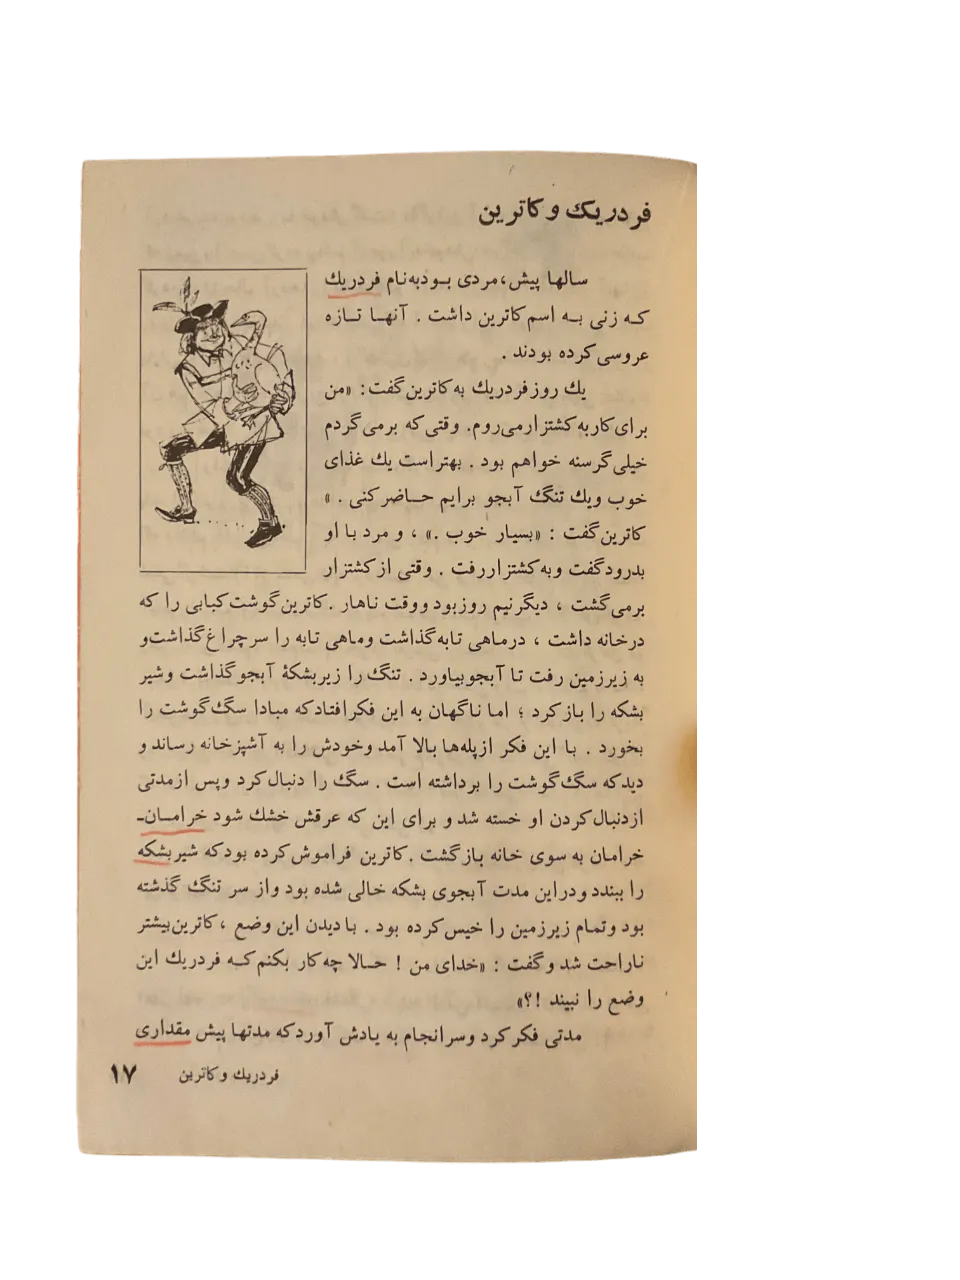 فردریك و کاترین
سالها پیش، مردی بــود به نام فردریك
کــه زنی بــه اسم کاترین داشت . آنهــا تــازه
عروسی کرده بودند .
یك روز فردریك به کاترین گفت: «من
برای کار به کشتزار می‌روم. وقتی که برمی‌گردم
خیلی گرسنه خواهم بود . بهتر است یك غذای
خوب و یك تنگ آبجو برایم حــاضر کنی . »
کاترین گفت : «بسیار خوب .» ، و مرد با او
بدرود گفت و به کشتزار رفت . وقتی از کشتزار
برمی‌گشت ، دیگر نیم روز بود و وقت ناهار . کاترین گوشت کبابی را که
در خانه داشت ، در ماهی تابه گذاشت و ماهی تابه را سر چراغ گذاشت و
به زیر زمین رفت تا آبجو بیاورد . تنگ را زیر بشکۀ آبجو گذاشت و شیر
بشکه را باز کرد ؛ اما ناگهان به این فکر افتاد که مبادا سگ گوشت را
بخورد . با این فکر از پله‌ها بالا آمد و خودش را به آشپزخانه رساند و
دید که سگ گوشت را برداشته است . سگ را دنبال کرد و پس از مدتی
از دنبال کردن او خسته شد و برای این که عرقش خشك شود خرامــان-
خرامان به سوی خانه باز گشت . کاترین فراموش کرده بود که شیر بشکه
را ببندد و در این مدت آبجوی بشکه خالی شده بود و از سر تنگ گذشته
بود و تمام زیر زمین را خیس کرده بود . با دیدن این وضع ، کاترین بیشتر
ناراحت شد و گفت : «خدای من ! حــالا چه کار بکنم کــه فردریك این
وضع را نبیند !؟»
مدتی فکر کرد و سرانجام به یادش آورد که مدتها پیش مقداری
فردریك و کاترین ۱۷